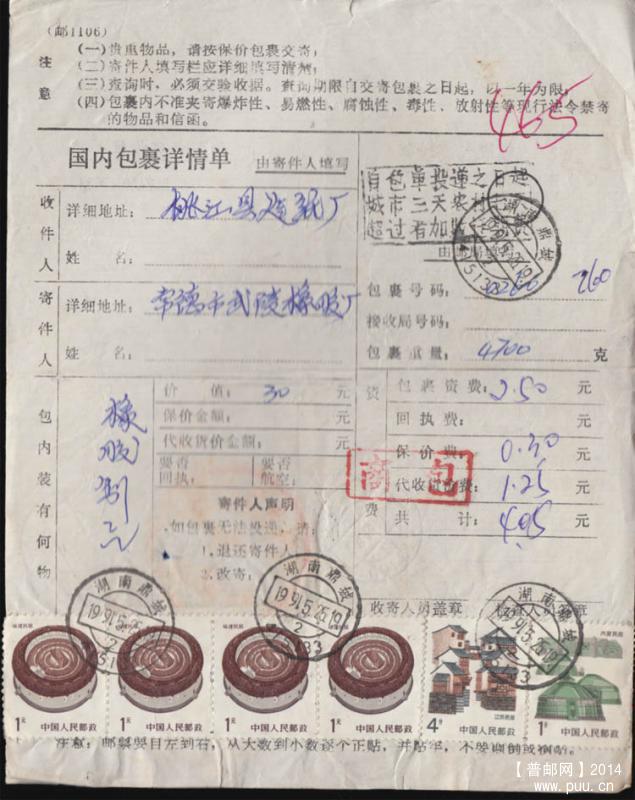 (邮1106)
注意
(一)贵重物品，请按保价包裹交寄；
(二)寄件人填写栏应详细填写清楚；
(三)查询时，必须交验收据。查询期限自交寄包裹之日起，以一年为限；
(四)包裹内不准夹寄爆炸性、易燃性、腐蚀性、毒性、放射性等现行法令禁寄
的物品和信函。
465
国内包裹详情单 由寄件人填写
自包单投递之日起
城市三天农村
超过者加收
收件人
详细地址：桃江县造纸厂
姓名：
寄件人
详细地址：常德市武陵橡胶厂
姓名：
包裹号码： 260
接收局号码：
包裹重量：4700 克
包内装有何物
橡胶制品
价值：30 元
保价金额： 元
代收货价金额： 元
要否回执：
要否航空：
寄件人声明
如包裹无法投递，请：
1.退还寄件人
2.改寄：
资费
包裹资费：2.50 元
回执费： 元
保价费：0.30 元
代收货价费：1.25 元
共计：4.05 元
商包
收寄人员盖章
湖南鼎城
1991.5.25.19
2
湖南鼎城
1991.5.25.19
2
5133
湖南鼎城
1991.5.25.19
福建民居
1元
中国人民邮政
福建民居
1元
中国人民邮政
福建民居
1元
中国人民邮政
福建民居
1元
中国人民邮政
江西民居
4分
中国人民邮政
内蒙民居
1分
中国人民邮政
注意：邮票要自左到右，从大数到小数逐个正贴，并贴牢，不要颠倒或倒贴。
【普邮网】2014
www.puu.cn